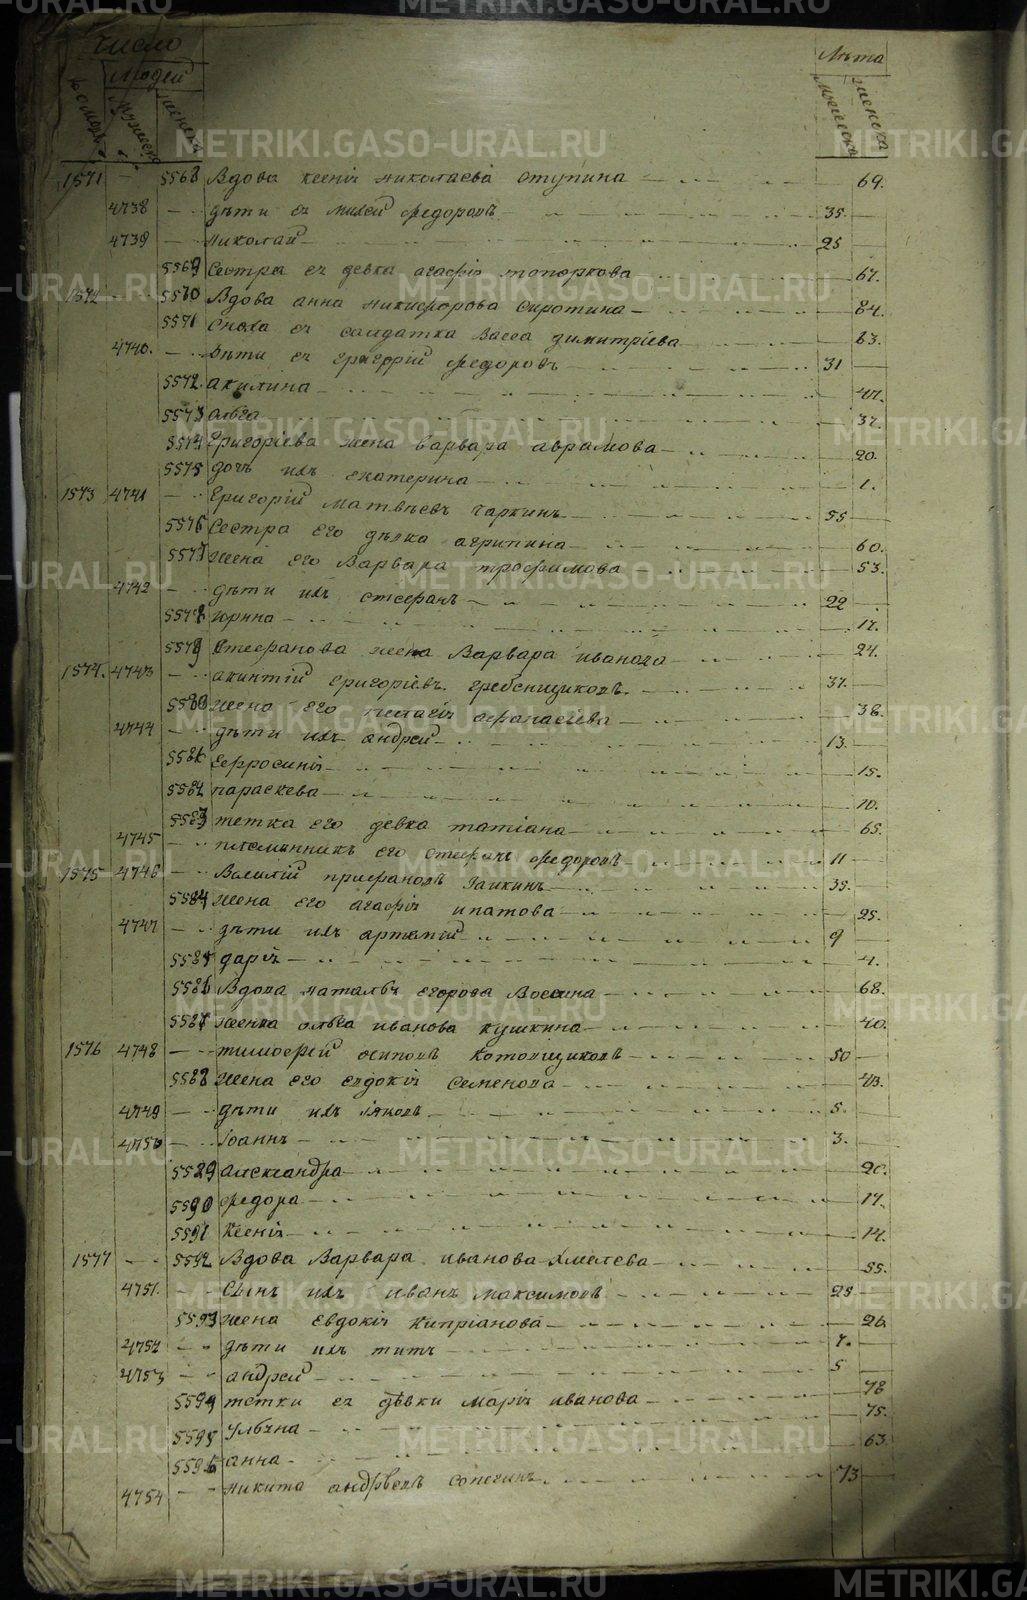 Число
Людей
Лѣта
Домовъ
Мужеска
Женска
Мужеска
Женска
1571 — 5568 Вдова Ксенія Николаева Ступина 69.
4738 дѣти ея Федоровъ 35.
4739 Николай 25
5569 Сестра ея девка Агафія Топоркова 67.
1572 5570 Вдова Анна Никифорова Сиротина 84.
5571 Сноха ея салдатка Васса Димитріева 63.
4740. Дѣти ея Григорій Федоровъ 31
5572. Акилина 47.
5573 Ольга 37.
5574 Григоріева жена Варвара Аврамова 20.
5575 дочь ихъ Екатерина 1.
1573 4741 Григорій Матвѣевъ Чаркинъ 55
5576 Сестра Его дѣвка Агрипина 60.
5577 Жена Его Варвара Трофимова 53.
4742 дѣти ихъ Стефанъ 22
5578 Ирина 17.
5579 Стефанова жена Варвара Иванова 24.
1574. 4743 Акинтій Григоріевъ Гребенщиковъ. 37.
5580 Жена Его Пелагія Афанасіева 38.
4744 дѣти ихъ Андрей 13.
5581 Ефросинія 15.
5582 Параскева 10.
5583 тетка его девка Татіана 65.
4745 племянникъ его Стефанъ Федоровъ 11
1575 4746 Василій Галкинъ 35.
5584 Жена Его Агафія Ипатова 25.
4747 дѣти ихъ Артемій 9
5585 Дарія 4.
5586 Вдова Наталья Егорова 68.
5587 Женка Ольга Иванова Кушкина 40.
1576 4748 Тимофей Осиповъ Котовщиковъ 50
5588 Жена его Евдокія Семенова 43.
4749 дѣти ихъ Іяковъ 5.
4750 Іоаннъ 3.
5589 Александра 20.
5590 Федора 17.
5591 Ксенія 14.
1577 5592 Вдова Варвара Иванова 55.
4751. Сынъ ихъ Иванъ Максимовъ 25
5593 Жена Евдокія Кипріанова 26
4752 дѣти ихъ Титъ 7.
4753 Андрей 5
5594 тетки ея дѣвки Марія Иванова 78
5595 Ульяна 75.
5596 Анна 63.
4754 Никита Андрѣевъ Сопегинъ 73
METRIKI.GASO-URAL.RU